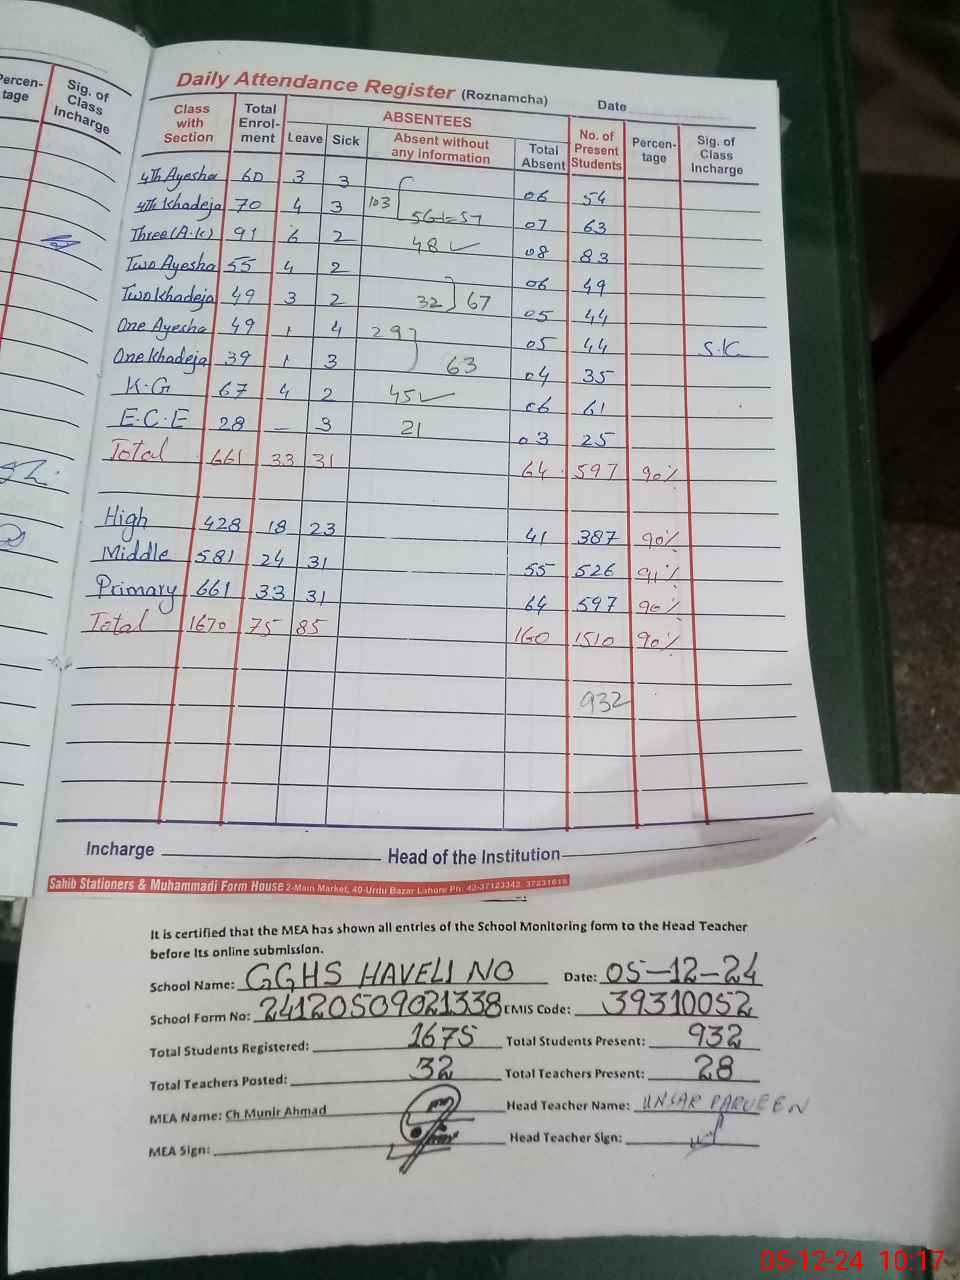 Percen-
tage
Sig. of
Class
Incharge
Daily Attendance Register (Roznamcha) Date
Class with Section Total Enrol-ment ABSENTEES No. of Present Students Percen-tage Sig. of Class Incharge
Leave Sick Absent without any information Total Absent
4th Ayesha 60 3 3 06 54
4th Khadeja 70 4 3 103 56+1=57 07 63
Three (A.K) 91 6 2 48 ✓ 08 83
Two Ayesha 55 4 2 06 49
Two Khadeja 49 3 2 32 67 05 44
One Ayesha 49 1 4 29 05 44 S.K
One Khadeja 39 1 3 63 04 35
K.G 67 4 2 45 ✓ 06 61
E.C.E 28 - 3 21 03 25
Total 661 33 31 64 597 90%
High 428 18 23 41 387 90%
Middle 581 24 31 55 526 91%
Primary 661 33 31 64 597 90%
Total 1670 75 85 160 1510 90%
932
Incharge Head of the Institution
Sahib Stationers & Muhammadi Form House 2-Main Market, 40-Urdu Bazar Lahore Ph: 42-37123342, 37231616
It is certified that the MEA has shown all entries of the School Monitoring form to the Head Teacher
before its online submission.
School Name: GGHS HAVELI NO Date: 05-12-24
School Form No: 24120509021338 EMIS Code: 39310052
Total Students Registered: 1675 Total Students Present: 932
Total Teachers Posted: 32 Total Teachers Present: 28
MEA Name: Ch Munir Ahmad Head Teacher Name: UNSAR PARVEEN
MEA Sign: Head Teacher Sign:
05-12-24 10:17